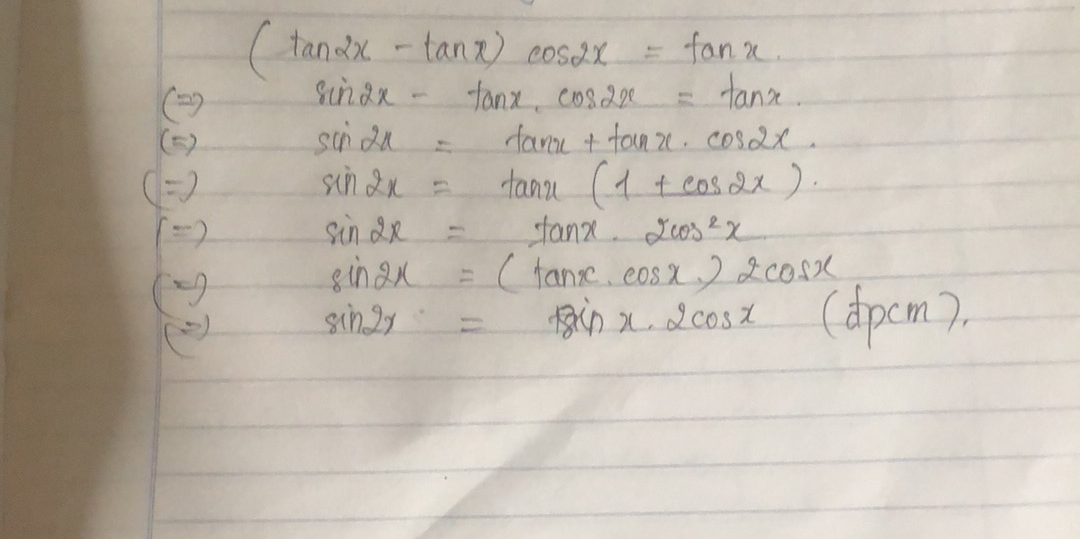 (tan2x - tanx) cos2x = tanx.
(=) sin2x - tanx. cos2x = tanx.
(=) sin2x = tanx + tanx. cos2x.
(=) sin2x = tanx (1 + cos2x).
(=) sin2x = tanx. 2cos²x
(=) sin2x = (tanx. cosx.) 2cosx
(=) sin2x = sin x. 2cosx (đpcm).